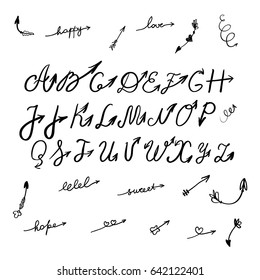 happy love
A B C D E F G H
I J K L M N O P
Q S T U V W X Y Z
lelel sweet
hope
shutterstock.com · 642122401